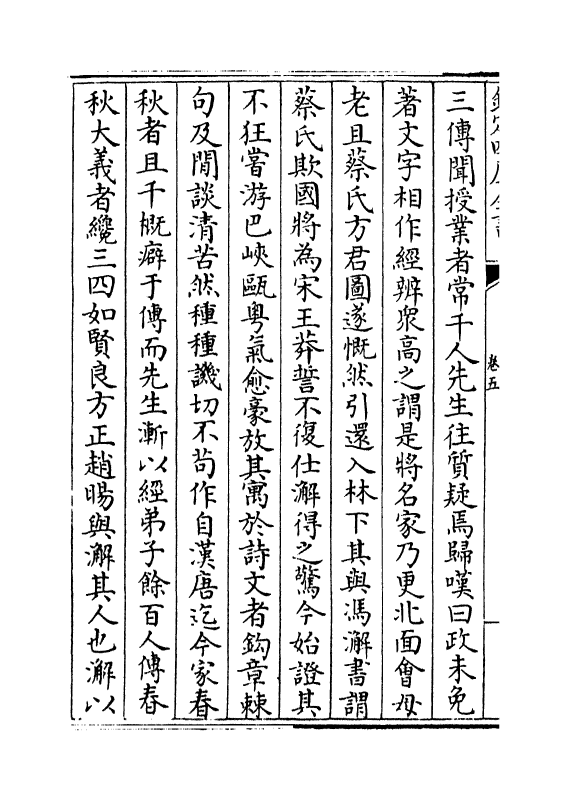 欽定四庫全書
卷五
三傳聞授業者常千人先生往質疑焉歸嘆曰政未免
著文字相作經辨眾高之謂是將名家乃更北面會母
老且蔡氏方君圖遂慨然引還入林下其與馮澥書謂
蔡氏欺國將為宋王莽誓不復仕澥得之驚今始證其
不狂嘗游巴峽甌粵氣愈豪放其寓於詩文者鈎章棘
句及閒談清苦然種種譏切不茍作自漢唐迄今家春
秋者且千概癖于傳而先生漸以經弟子餘百人傳春
秋大義者纔三四如賢良方正趙暘與澥其人也澥以